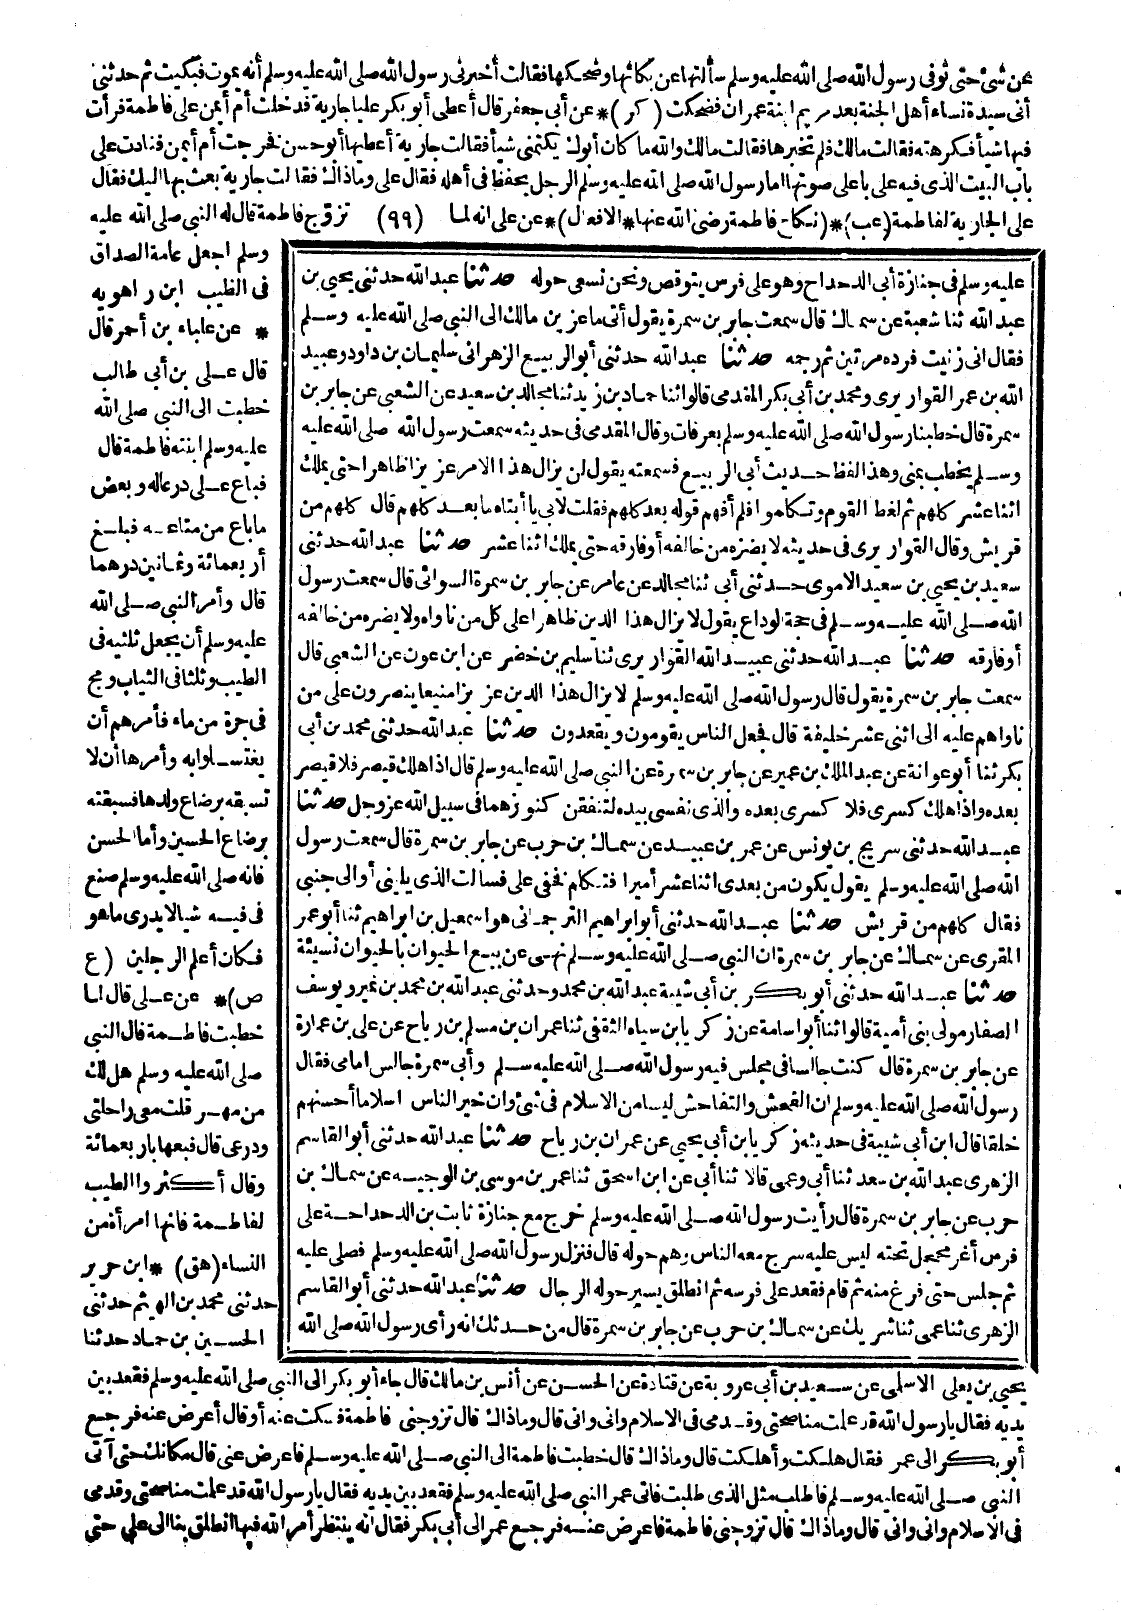 عن شئ حتى توفى رسول الله صلى الله عليه وسلم سألتها عن بكائها وضحكها فقالت أخبرنى رسول الله صلى الله عليه وسلم أنه يموت فبكيت ثم حدثنى
أنى سيدة نساء أهل الجنة بعد مريم ابنة عمران فضحكت (كر)* عن أبى جعفر قال أعطى أبو بكر عليا جارية فدخلت أم أيمن على فاطمة فرأت
فيها شيأ فكرهته فقالت مالك فلم تخبرها فقالت مالك والله ما كان أبوك يكتمنى شيأ فقالت جارية أعطيها أبو حسن فخرجت أم أيمن فنادت على
باب البيت الذى فيه على باعلى صوتها اما رسول الله صلى الله عليه وسلم الرجل يحفظ فى أهله فقال على وماذاك فقالت جارية بعث بها اليك فقال
على الجارية لفاطمة (عب)* (نكاح فاطمة رضى الله عنها * الافعال)* عن على انه لما (٩٩) تزوج فاطمة قال له النبى صلى الله عليه
وسلم اجعل عامة الصداق
فى الطيب ابن راهويه
* عن علباء بن أحمر قال
قال عـلى بن أبى طالب
خطبت الى النبى صلى الله
عليه وسلم ابنته فاطمة قال
فباع عـلى درعاله وبعض
ما باع من متاعـه فبلغ
أربعمائة وثمانين درهما
قال وأمر النبى صـلى الله
عليه وسلم أن يجعل ثلثيه فى
الطيب وثلثا فى الثياب ومج
فى جرة من ماء فأمرهم أن
يغتسـلوا به وأمرها أن لا
تسبقه برضاع ولدها فسبقته
برضاع الحسين وأما الحسن
فانه صلى الله عليه وسلم صنع
فى فيـه شيأ لا يدرى ما هو
فـكان أعلم الرجلين (ع
ص)* عن عـلى قال لما
خطبت فاطـمة قال النبى
صلى الله عليه وسلم هل لك
من مهـر قلت معى راحلتى
ودرعى قال فبعهما باربعمائة
وقال أكثروا الطيب
لفاطـمة فانها امرأة من
النساء (هق) * ابن جرير
حدثنى محمد بن الهيثم حدثنى
الحسـين بن حماد حدثنا
عليه وسلم فى جنازة أبى الدحداح وهو على فرس يتوقص ونحن نسعى حوله حدثنا عبد الله حدثنى يحيى بن
عبد الله ثنا شعبة عن سماك قال سمعت جابر بن سمرة يقول أتى ماعز بن مالك الى النبى صلى الله عليه وسـلم
فقال انى زنيت فرده مرتين ثم رجمه حدثنا عبد الله حدثنى أبو الربيع الزهرانى سليمان بن داود وعبيد
الله بن عمر القواريرى ومحمد بن أبى بكر المقدمى قالوا ثنا حماد بن زيد ثنا مجالد بن سعيد عن الشعبى عن جابر بن
سمرة قال خطبنا رسول الله صلى الله عليه وسلم بعرفات وقال المقدمى فى حديثه سمعت رسول الله صلى الله عليه
وسـلم يخطب بمنى وهذا لفظ حـديث أبى الربيع فسمعته يقول لن يزال هذا الامر عزيزا ظاهرا حتى يملك
اثنا عشر كلهم ثم لغط القوم وتكلموا فلم أفهم قوله بعد كلهم فقلت لابى يا أبتاه ما بعـد كلهم قال كلهم من
قريش وقال القواريرى فى حديثه لا يضره من خالفه أو فارقه حتى يملك اثنا عشر حدثنا عبد الله حدثنى
سعيد بن يحيى بن سعيد الاموى حـدثنى أبى ثنا مجالد عن عامر عن جابر بن سمرة السوائى قال سمعت رسول
الله صـلى الله عليـه وسـلم فى حجة الوداع يقول لا يزال هذا الدين ظاهرا على كل من ناواه ولا يضره من خالفه
أو فارقه حدثنا عبـد الله حدثنى عبيـد الله القواريرى ثنا سليم بن خضر عن ابن عون عن الشعبى قال
سمعت جابر بن سمرة يقول قال رسول الله صلى الله عليه وسلم لا يزال هذا الدين عزيزا منيعا ينصرون على من
ناواهم عليه الى اثنى عشر خليفة قال فجعل الناس يقومون ويقعدون حدثنا عبد الله حدثنى محمد بن أبى
بكر ثنا أبو عوانة عن عبد الملك بن عمير عن جابر بن سمرة عن النبى صلى الله عليه وسلم قال اذا هلك قيصر فلا قيصر
بعده واذا هلك كسرى فلا كسرى بعده والذى نفسى بيده لتنفقن كنوزهما فى سبيل الله عز وجل حدثنا
عبـد الله حدثنى سريج بن يونس عن عمر بن عبيـد عن سماك بن حرب عن جابر بن سمرة قال سمعت رسول
الله صلى الله عليه وسلم يقول يكون من بعدى اثنا عشر أميرا فتكلم فخفى على فسالت الذى يلينى أو الى جنبى
فقال كلهم من قريش حدثنا عبـد الله حدثنى أبو ابراهيم الترجمـانى هو اسمعيل بن ابراهيم ثنا أبو عمر
المقرى عن سماك عن جابر بن سمرة ان النبى صـلى الله عليه وسـلم نهـى عن بيـع الحيوان بالحيوان نسيئة
حدثنا عبـد الله حدثنى أبو بكر بن أبى شيبة عبد الله بن محمد وحدثنى عبد الله بن محمد بن نمير ويوسف
الصفار مولى بنى أمية قالوا ثنا أبو أسامة عن زكريا بن سياه الثقفى ثنا عمران بن مسلم بن رياح عن على بن عمارة
عن جابر بن سمرة قال كنت جالسا فى مجلس فيه رسول الله صـلى الله عليه سـلم وأبى سمرة جالس امامى فقال
رسول الله صلى الله عليه وسلم ان الفحش والتفاحش ليسا من الاسلام فى شئ وان خير الناس اسلاما أحسنهم
خلقا قال ابن أبى شيبة فى حديثه زكريا بن أبى يحيى عن عمران بن رياح حدثنا عبد الله حدثنى أبو القاسم
الزهرى عبد الله بن سـعد ثنا أبى وعمى قالا ثنا أبى عن ابن اسحق ثنا عمر بن موسى بن الوجيـه عن سماك بن
حرب عن جابر بن سمرة قال رأيت رسول الله صـلى الله عليه وسلم خرج مع جنازة ثابت بن الدحداحـة على
فرس أغر محجل تحته ليس عليه سرج معه الناس وهم حوله قال فنزل رسول الله صلى الله عليه وسلم فصلى عليه
ثم جلس حتى فرغ منه ثم قام فقعد على فرسه ثم انطلق يسير حوله الرجال حدثنا عبد الله حدثنى أبو القاسم
الزهرى ثنا عمى ثنا شريك عن سماك بن حرب عن جابر بن سمرة قال من حـدثك انه رأى رسول الله صلى الله
يحيى بن يعلى الاسلمى عن سـعيد بن أبى عروبة عن قتادة عن الحسـن عن أنس بن مالك قال جاء أبو بكر الى النبى صلى الله عليه وسلم فقعد بين
يديه فقال يا رسول الله قد علمت مناصحتى وقـدمى فى الاسلام وانى وانى قال وماذاك قال تزوجنى فاطمة فسكت عنه أو قال أعرض عنه فرجـع
أبو بكر الى عمر فقال هلـكت وأهلـكت قال وماذاك قال خطبت فاطمة الى النبى صـلى الله عليه وسـلم فاعرض عنى قال مكانك حتى آتى
النبى صـلى الله عليه وسـلم فاطلب مثل الذى طلبت فاتى عمر النبى صلى الله عليه وسلم فقعد بين يديه فقال يا رسول الله قد علمت مناصحتى وقدمى
فى الاسلام وانى وانى قال وماذاك قال تزوجنى فاطمة فاعرض عنـه فرجـع عمر الى أبى بكر فقال انه ينتظر أمر الله فيها انطلق بنا الى على حتى